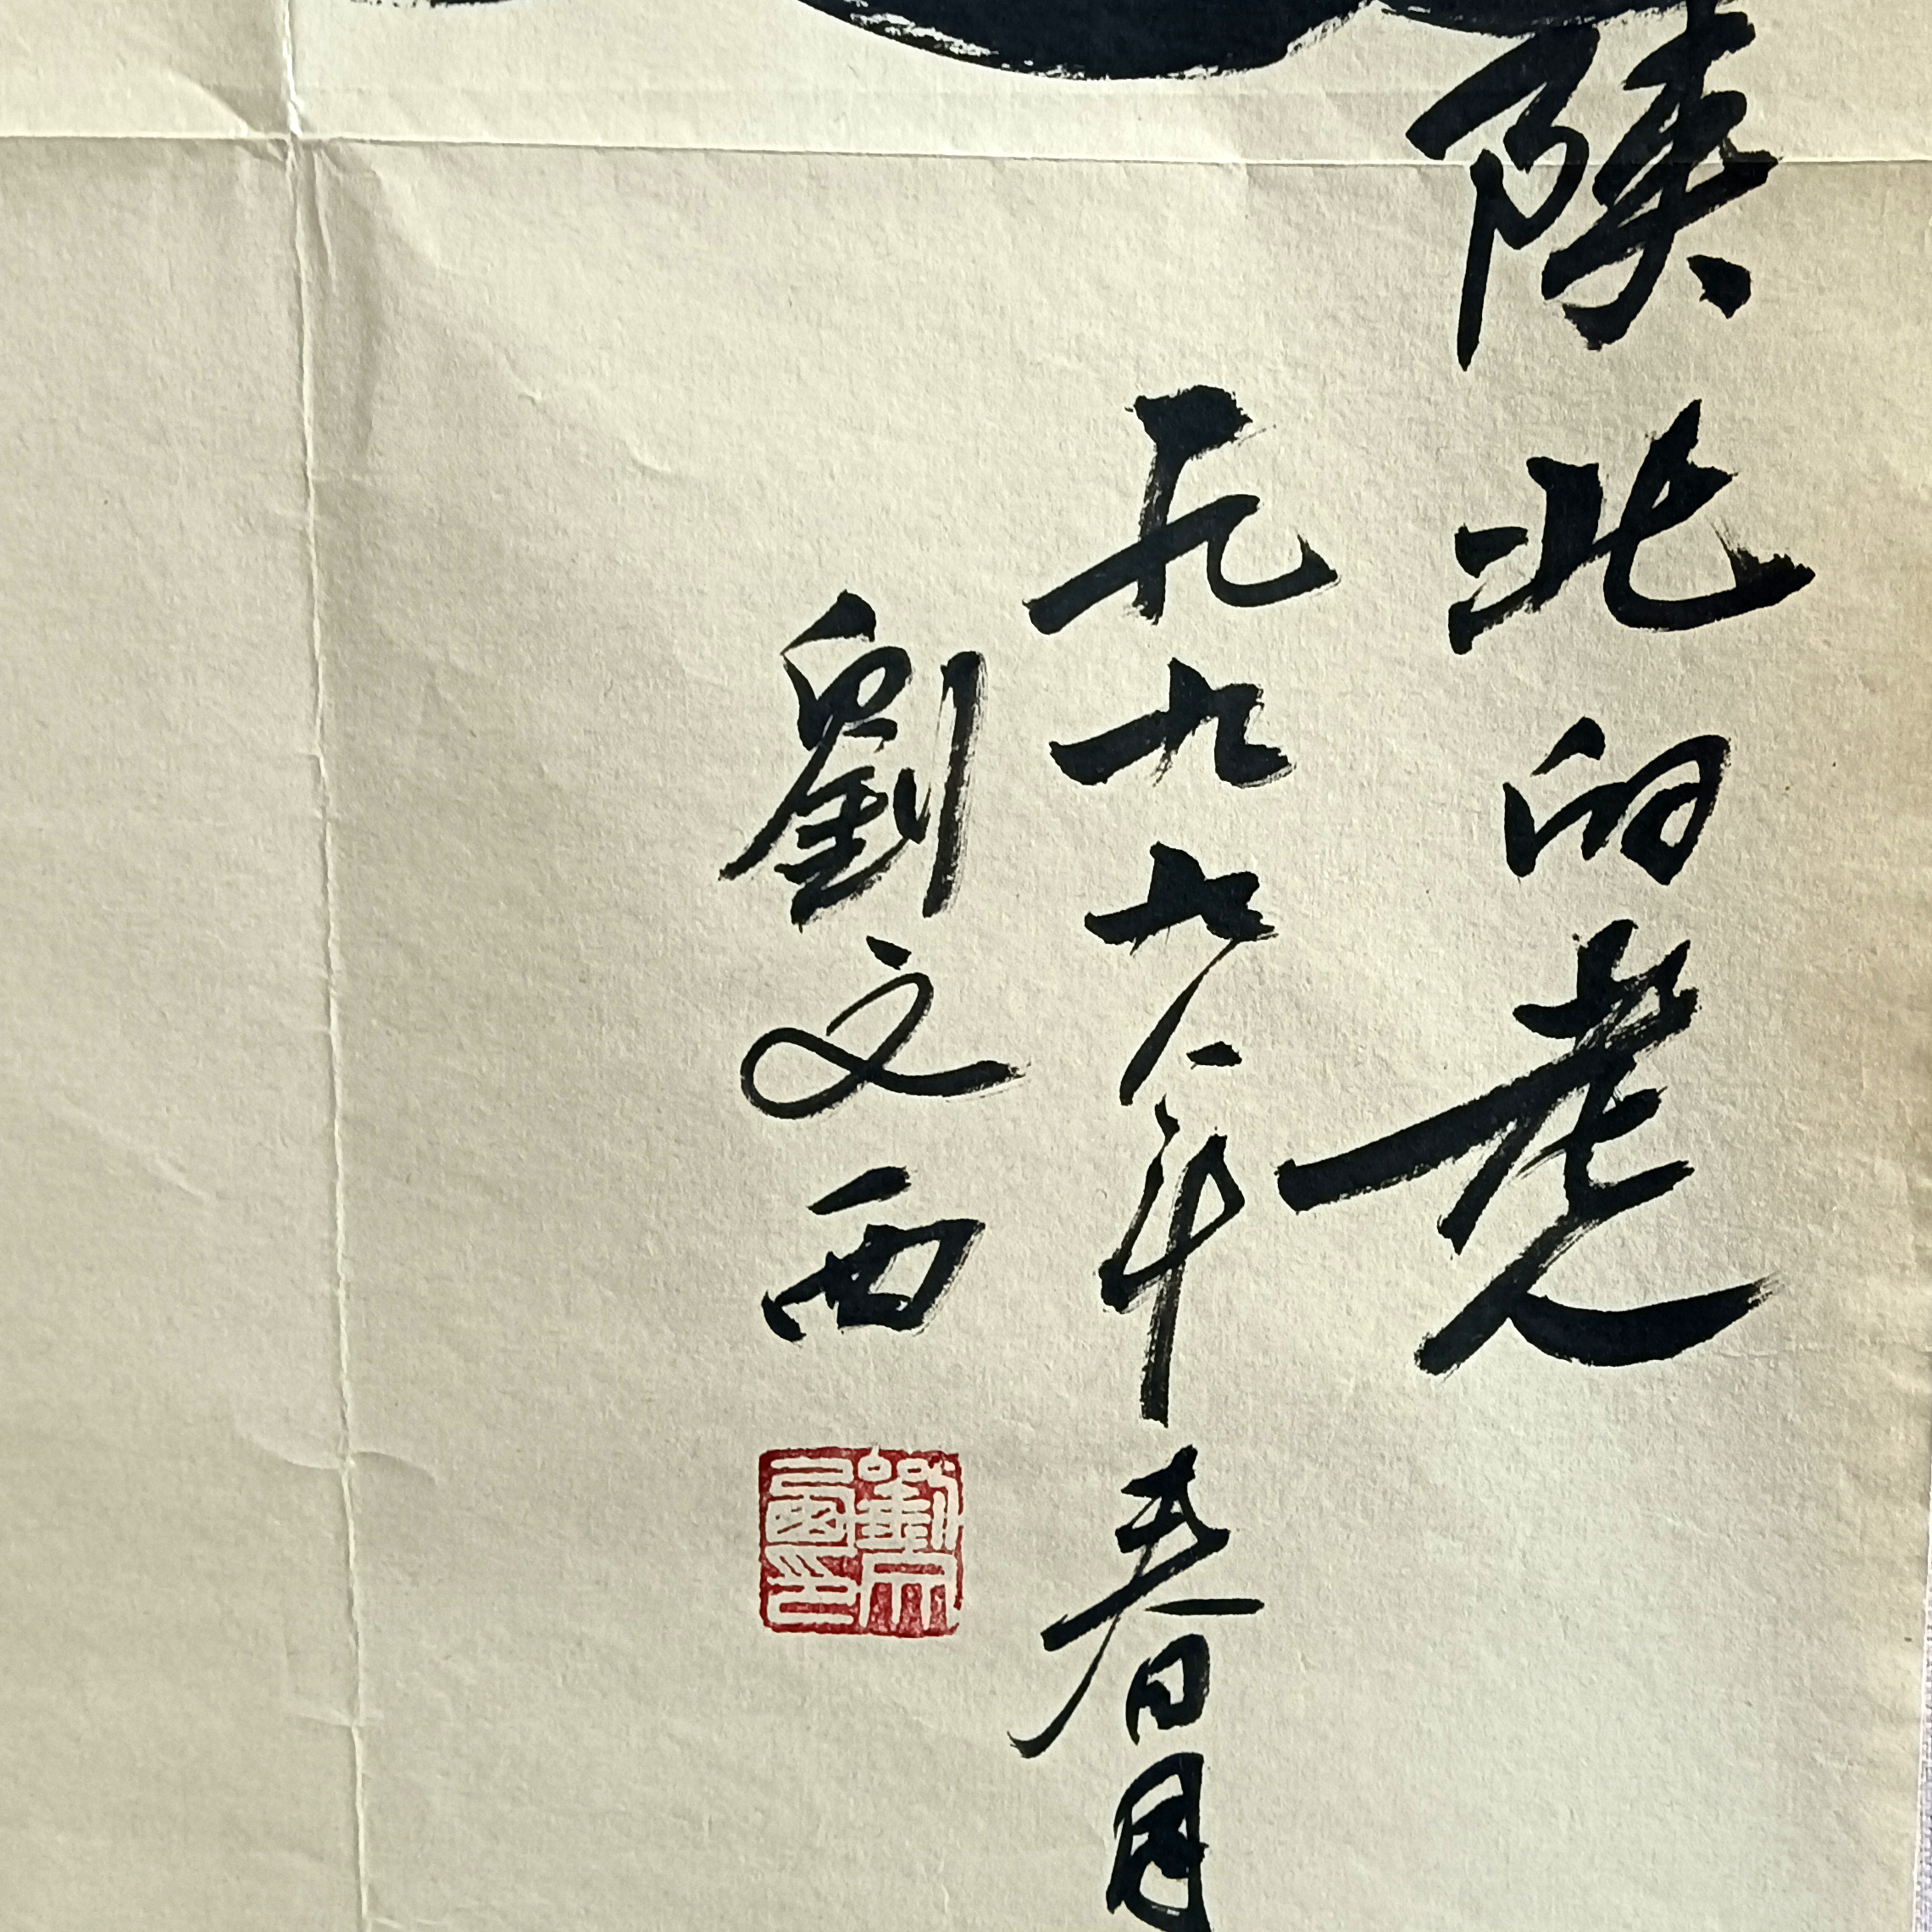 陝北的老人
一九九六年春月
劉文西
劉文西印